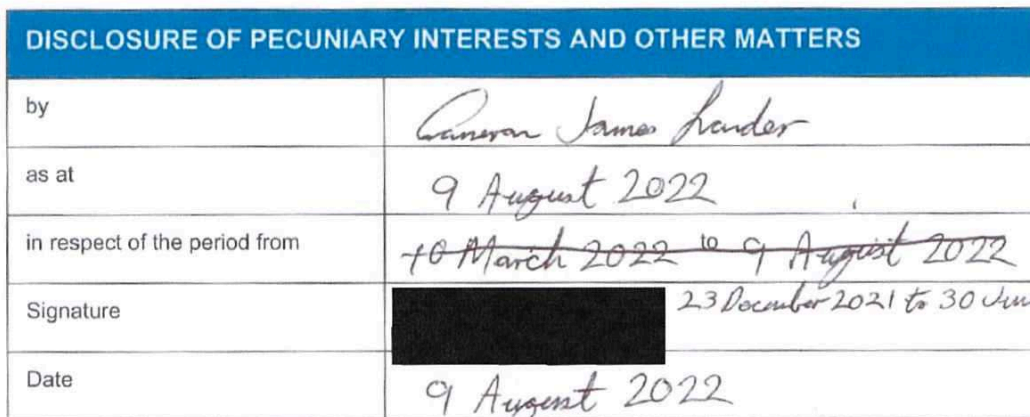 DISCLOSURE OF PECUNIARY INTERESTS AND OTHER MATTERS
by Cameron James
as at 9 August 2022
in respect of the period from 10 March 2022 to 9 August 2022
Signature 23 December 2021 to 30 Jun
Date 9 August 2022